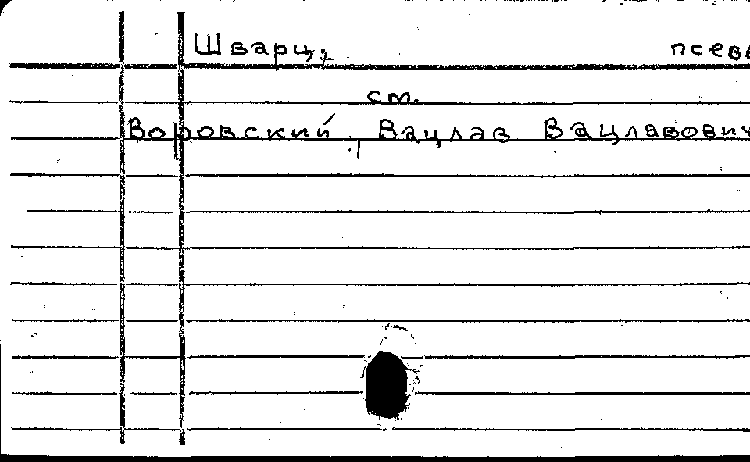 Шварц, псев
см.
Воровский, Вацлав Вацлавович